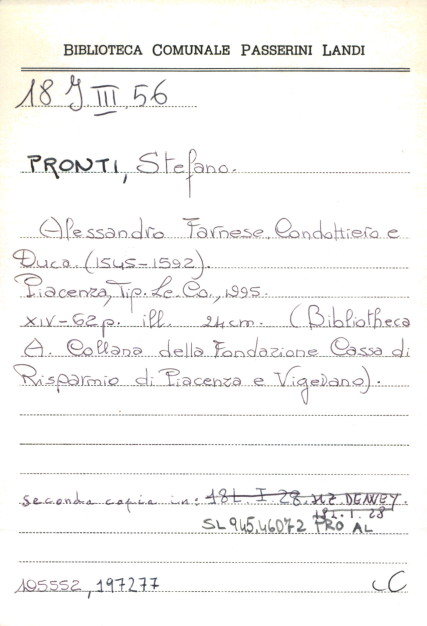 BIBLIOTECA COMUNALE PASSERINI LANDI
18 J III 56
PRONTI, Stefano.
Alessandro Farnese. Condottiero e
Duca. (1545-1592).
Piacenza, Tip. Le. Co., 1995.
XIV-62 p. ill. 24 cm. (Bibliotheca
A. Collana della Fondazione Cassa di
Risparmio di Piacenza e Vigevano).
seconda copia in: 18L. I. 28. DEWEY.
18L. I. 28
SL 945.46072 PRO AL
195552, 197277